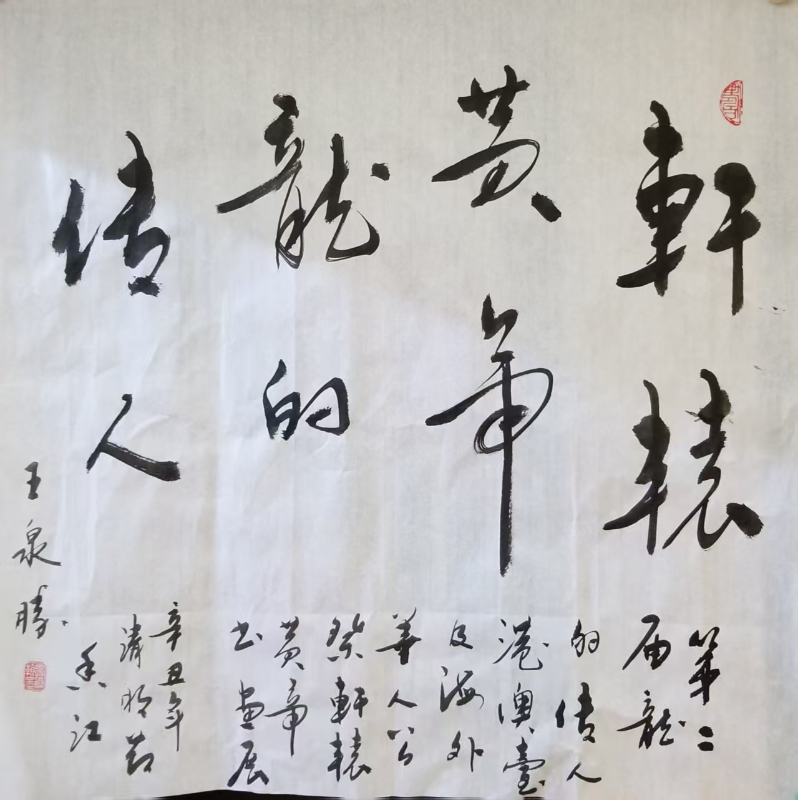 軒轅
黄帝
龍的
传人
第二
届龍
的传人
港澳臺
及海外
華人公
祭軒轅
黄帝
书画展
辛丑年
清明节
香江
王泉勝